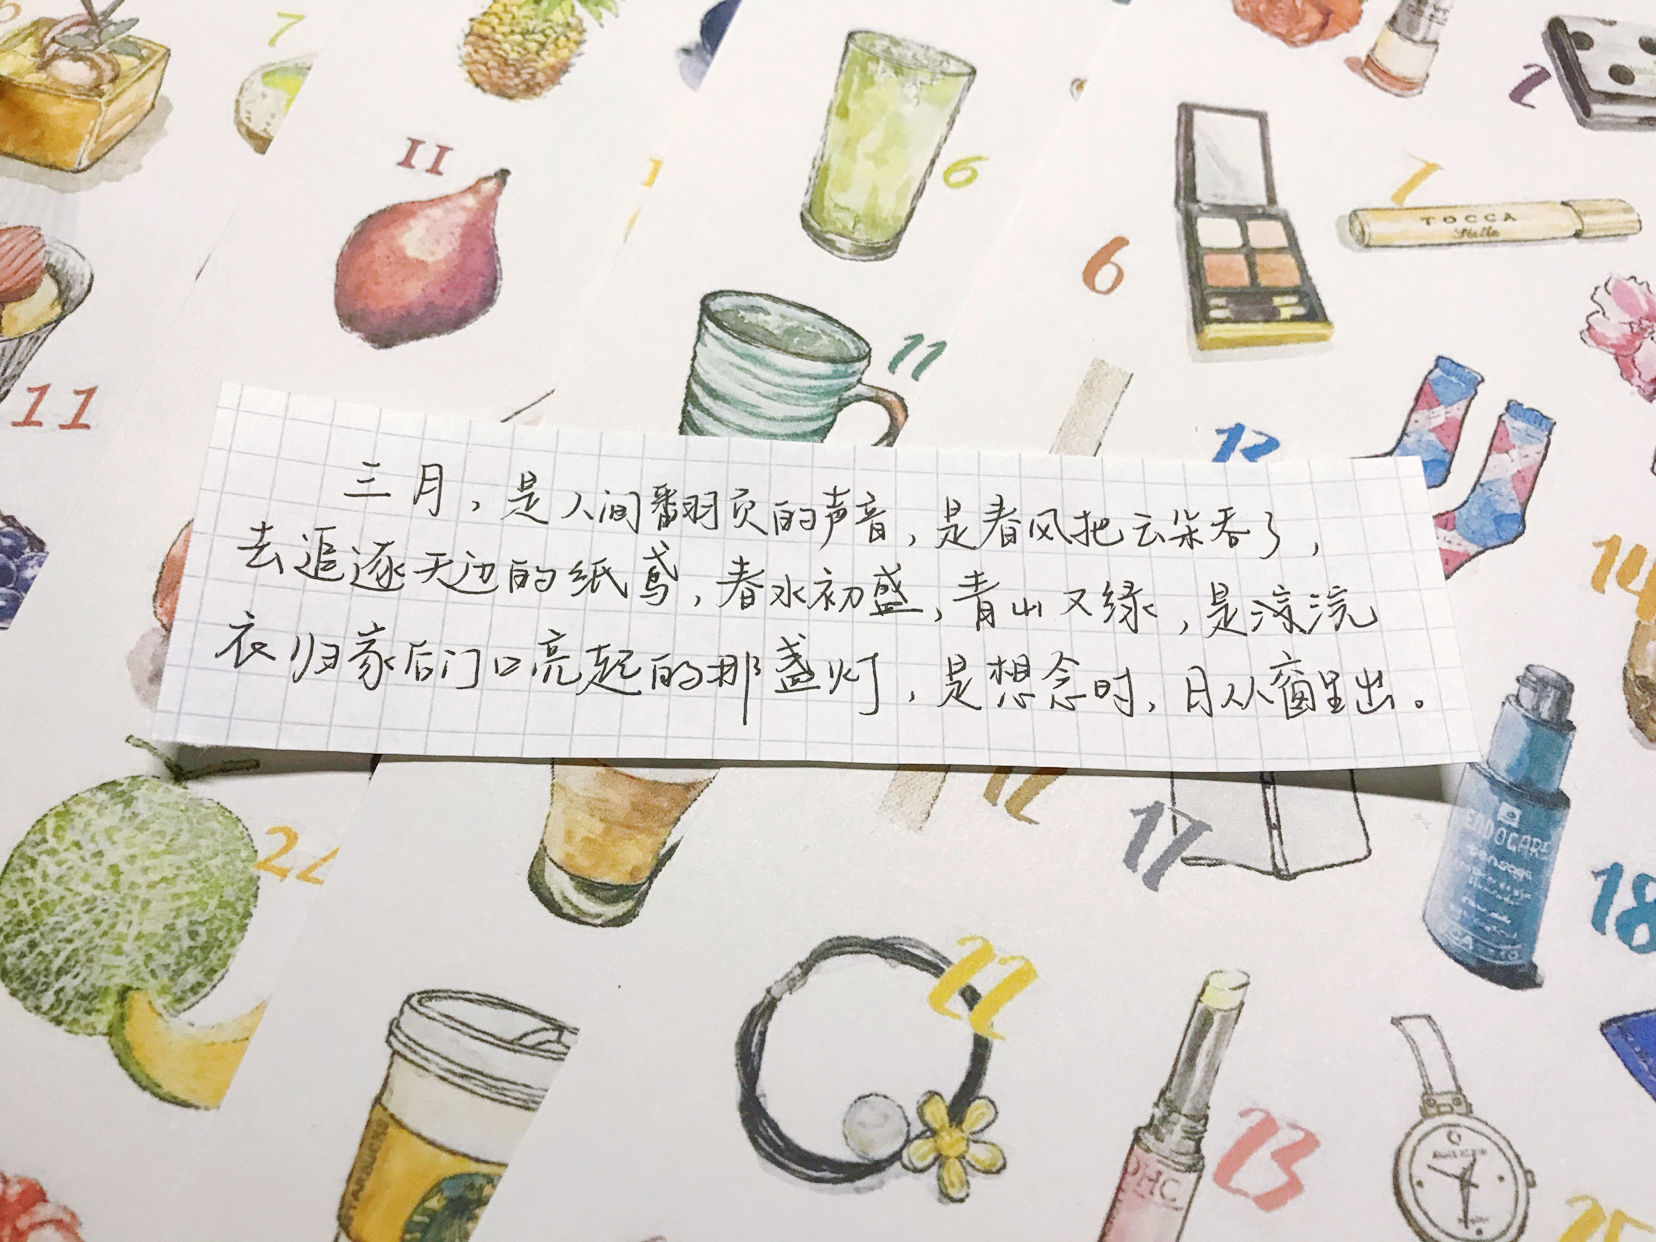 三月，是人间翻页的声音，是春风把云朵吞了，
去追逐天边的纸鸢，春水初盛，青山又绿，是凉浣
衣归家后门口亮起的那盏灯，是想念时，月从窗里出。
7
11
6
11
6
7
TOCCA
Stella
11
12
14
22
12
17
ENDOGARE
18
22
STARBUCKS
DHC
23
25